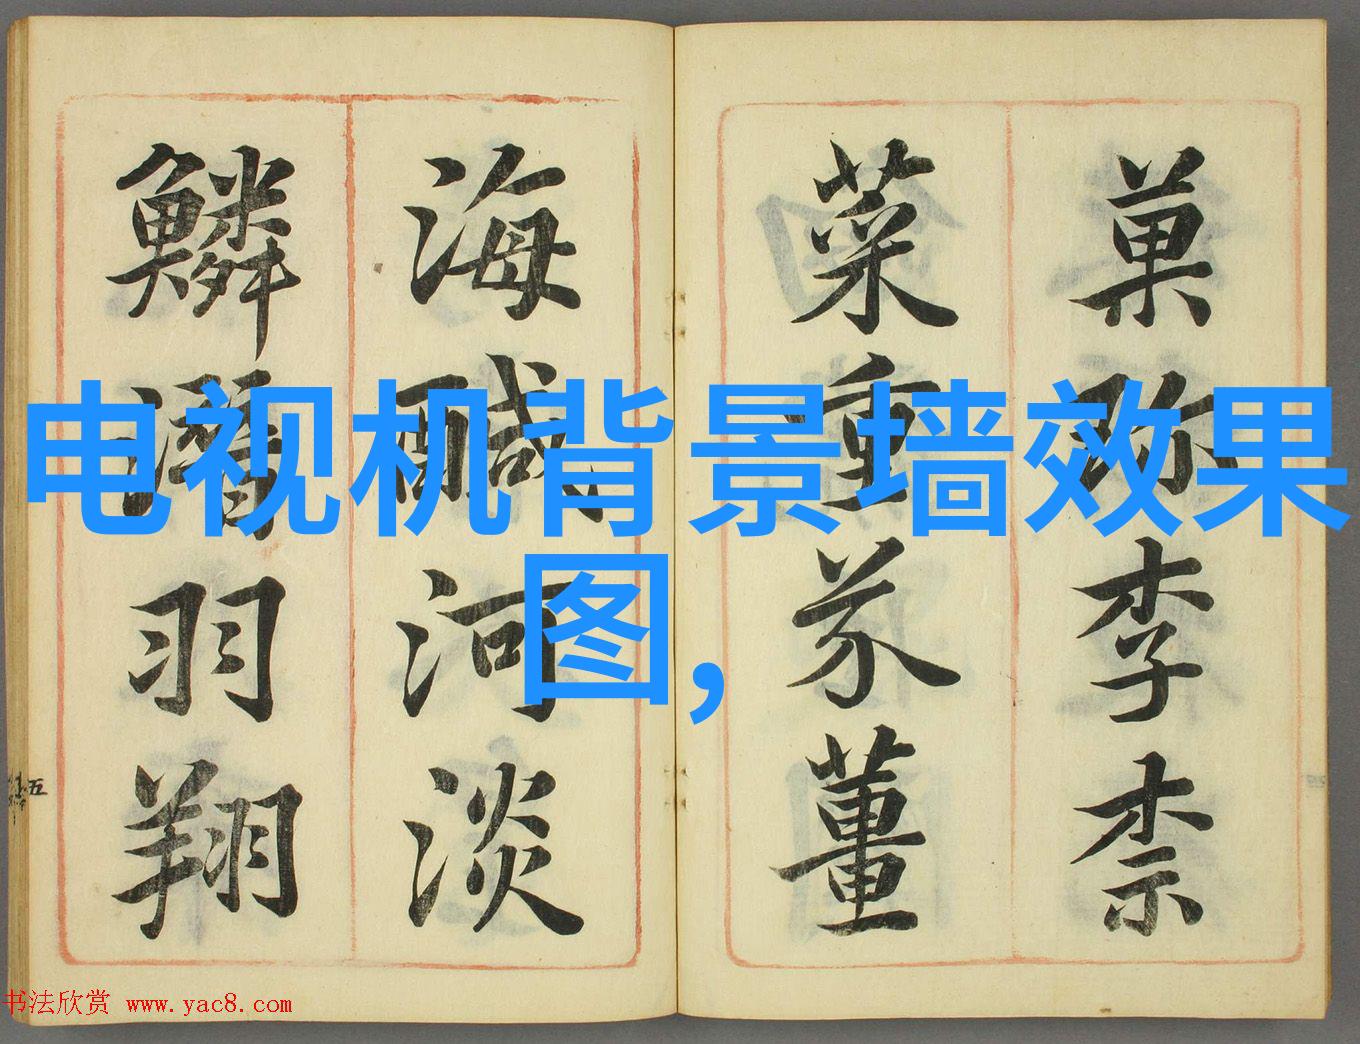 电视机背景墙效果
图，
菓珎李柰
菜重芥薑
海醎河淡
鱗潛羽翔
五
书法欣赏 www.yac8.com